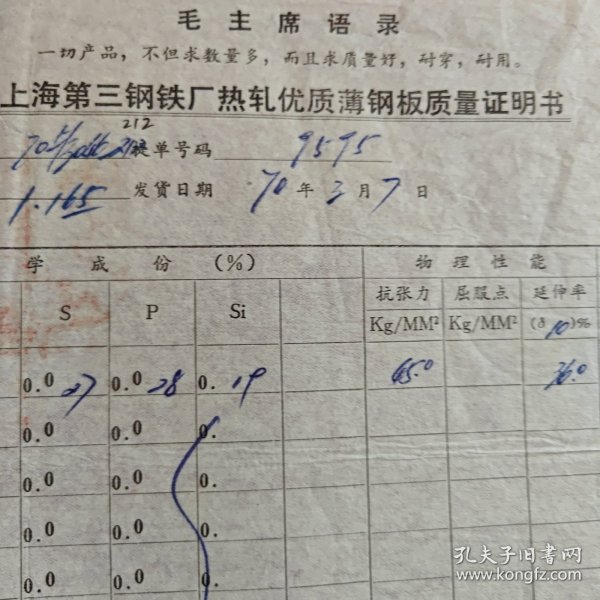 毛主席语录
一切产品，不但求数量多，而且求质量好，耐穿，耐用。
上海第三钢铁厂热轧优质薄钢板质量证明书
212
提单号码 9595
1.165 发货日期 70年3月7日
学成份(%) 物理性能
S P Si 抗张力 屈服点 延伸率
Kg/MM² Kg/MM² (δ10)%
0.027 0.028 0.19 45.0 36.0
0.0 0.0 0.
0.0 0.0 0.
0.0 0.0 0.
0.0 0.0 0.
孔夫子旧书网
www.kongfz.com